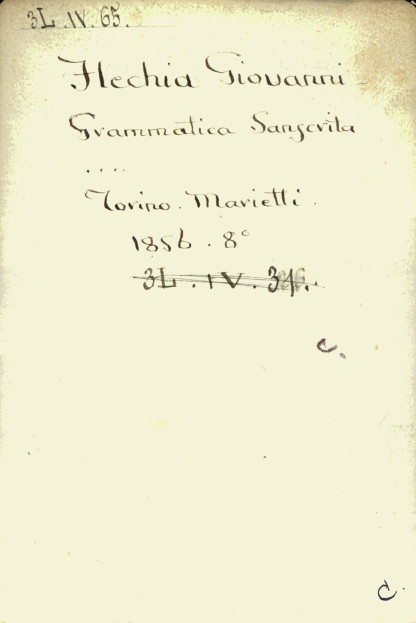 3L. IV. 65.
Flechia Giovanni -
Grammatica Sanscrita
....
Torino. Marietti.
1856. 8°
3L. IV.
C.
C.